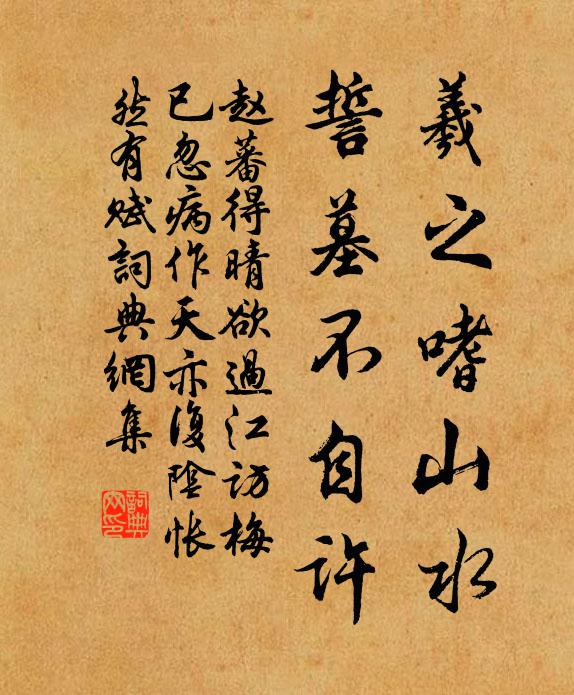 羲之嗜山水
誓墓不自許
赵蕃得晴欲過江訪梅
已忽病作天亦復陰悵
然有賦詞典網集
詞典網印